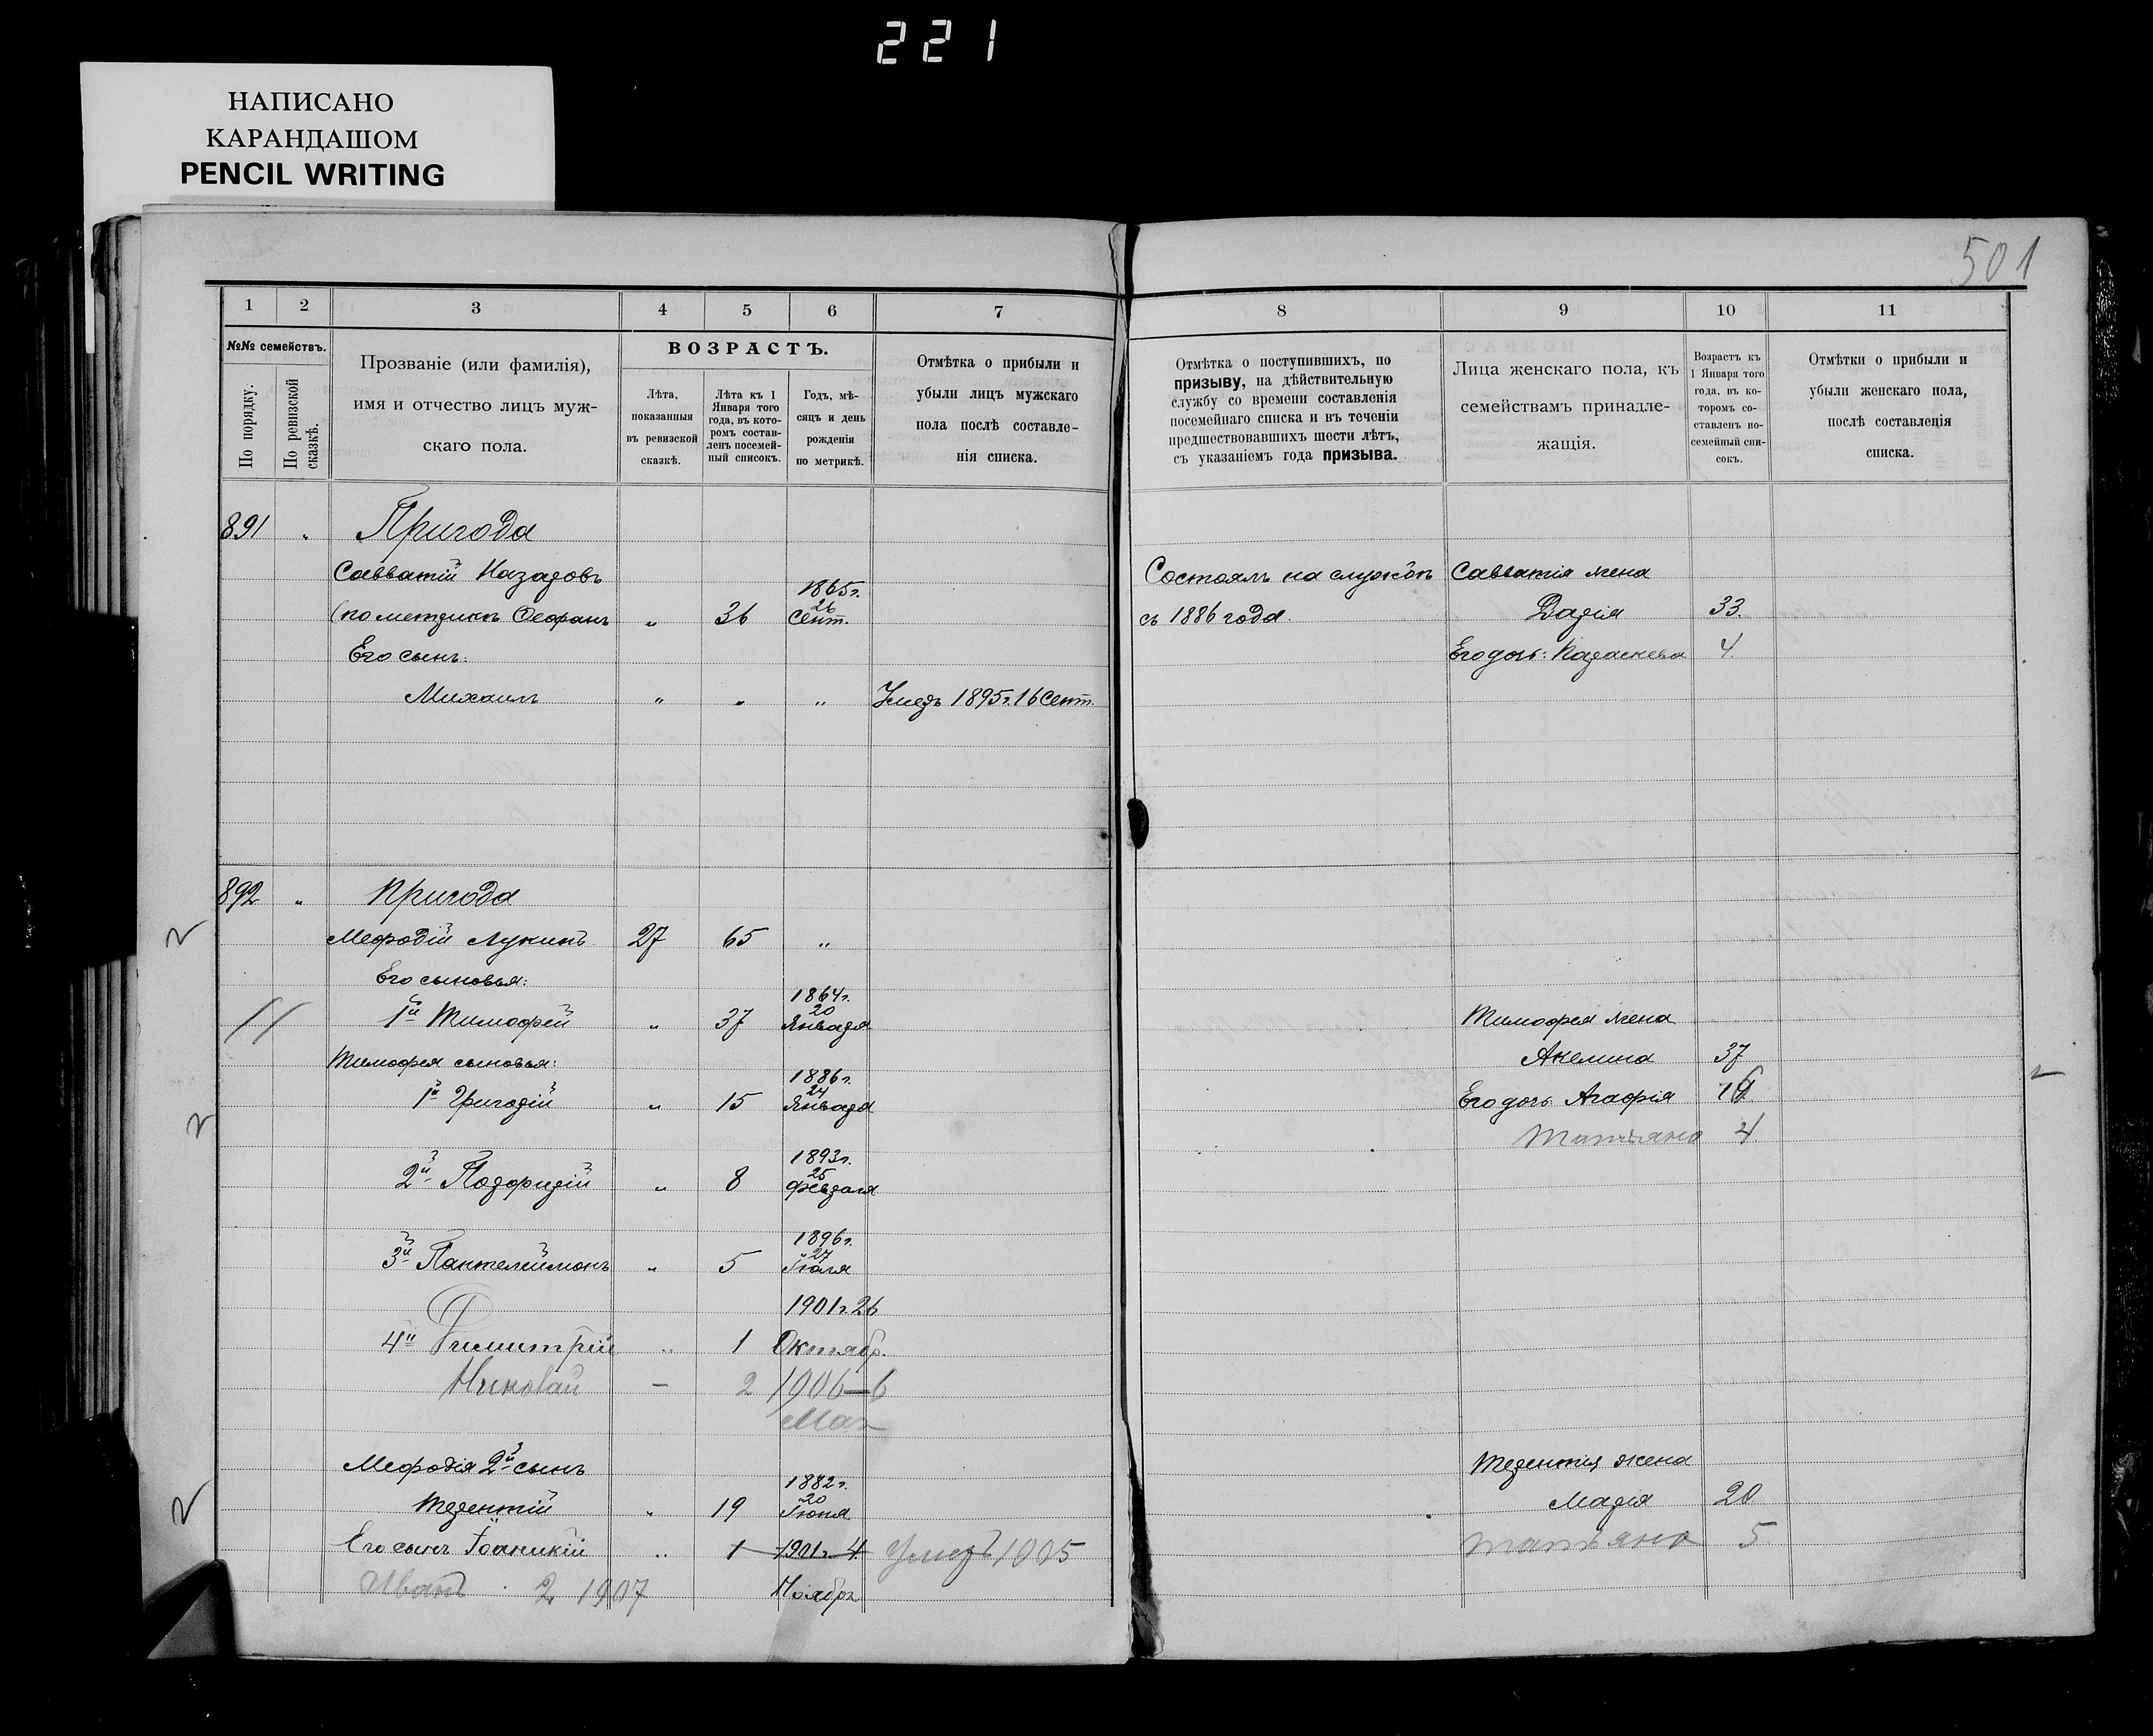 221
НАПИСАНО
КАРАНДАШОМ
PENCIL WRITING
501
1 2 3 4 5 6 7 8 9 10 11
№№ семействъ.
По порядку.
По ревизской сказкѣ.
Прозваніе (или фамилія),
имя и отчество лицъ муж-
скаго пола.
ВОЗРАСТЪ.
Лѣта,
показанныя
въ ревизской
сказкѣ.
Лѣта къ 1
Января того
года, въ кото-
ромъ состав-
ленъ посемей-
ный списокъ.
Годъ, мѣ-
сяцъ и день
рожденія
по метрикѣ.
Отмѣтка о прибыли и
убыли лицъ мужскаго
пола послѣ составле-
нія списка.
Отмѣтка о поступившихъ, по
призыву, на дѣйствительную
службу со времени составленія
посемейнаго списка и въ теченіи
предшествовавшихъ шести лѣтъ,
съ указаніемъ года призыва.
Лица женскаго пола, къ
семействамъ принадле-
жащія.
Возрастъ къ
1 Января того
года, въ ко-
торомъ со-
ставленъ по-
семейный спи-
сокъ.
Отмѣтки о прибыли и
убыли женскаго пола,
послѣ составленія
списка.
891 " Пригода
Савватій Назаровъ 1865г. Состоялъ на службѣ Савватія жена
(по метрикѣ Феофанъ " 36 26 Сент. съ 1886 года. Дарія 33.
Его сынъ: Его дочь: Параскева 4.
Михаилъ " " " Умеръ 1895г. 16 Сент.
892 " Пригода
Мефодій Лукинъ 27 65 "
Его сыновья:
1й Тимофей " 37 1864г. 20 Января Тимофея жена
Тимофея сыновья: Акелина 37
1й Григорій " 15 1886г. 24 Января Его дочь Агафія
Татьяна 4
2й Порфирій " 8 1893г. 25 Февраля
3й Пантелеймонъ " 5 1896г. 27 Іюля
4й Димитрій " 1 1901г. 26 Октябр.
Николай — 2 1906—6
Мая
Мефодія 2й сынъ Терентія жена
Терентій " 19 1882г. 20 Іюня Марія 20
Его сынъ Іоаникій " 1 1901г. 4 Умеръ 1905 Татьяна 5
Иванъ 2 1907 Ноября